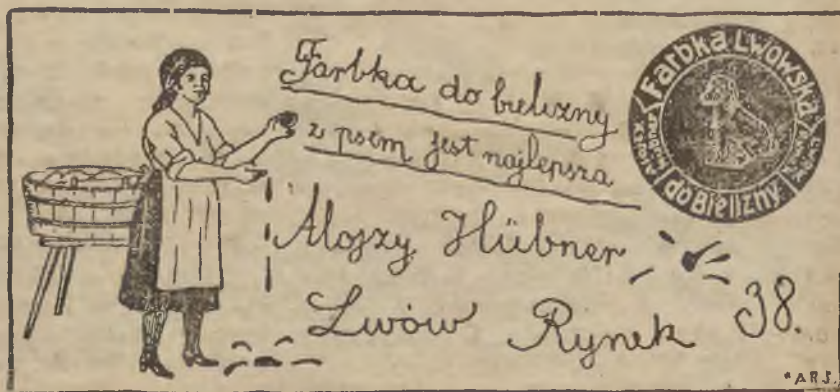 Farbka do bielizny
z psem jest najlepsza
Alojzy Hübner
Lwów Rynek 38.
Farbka Lwowska
do Bielizny
*ARS.